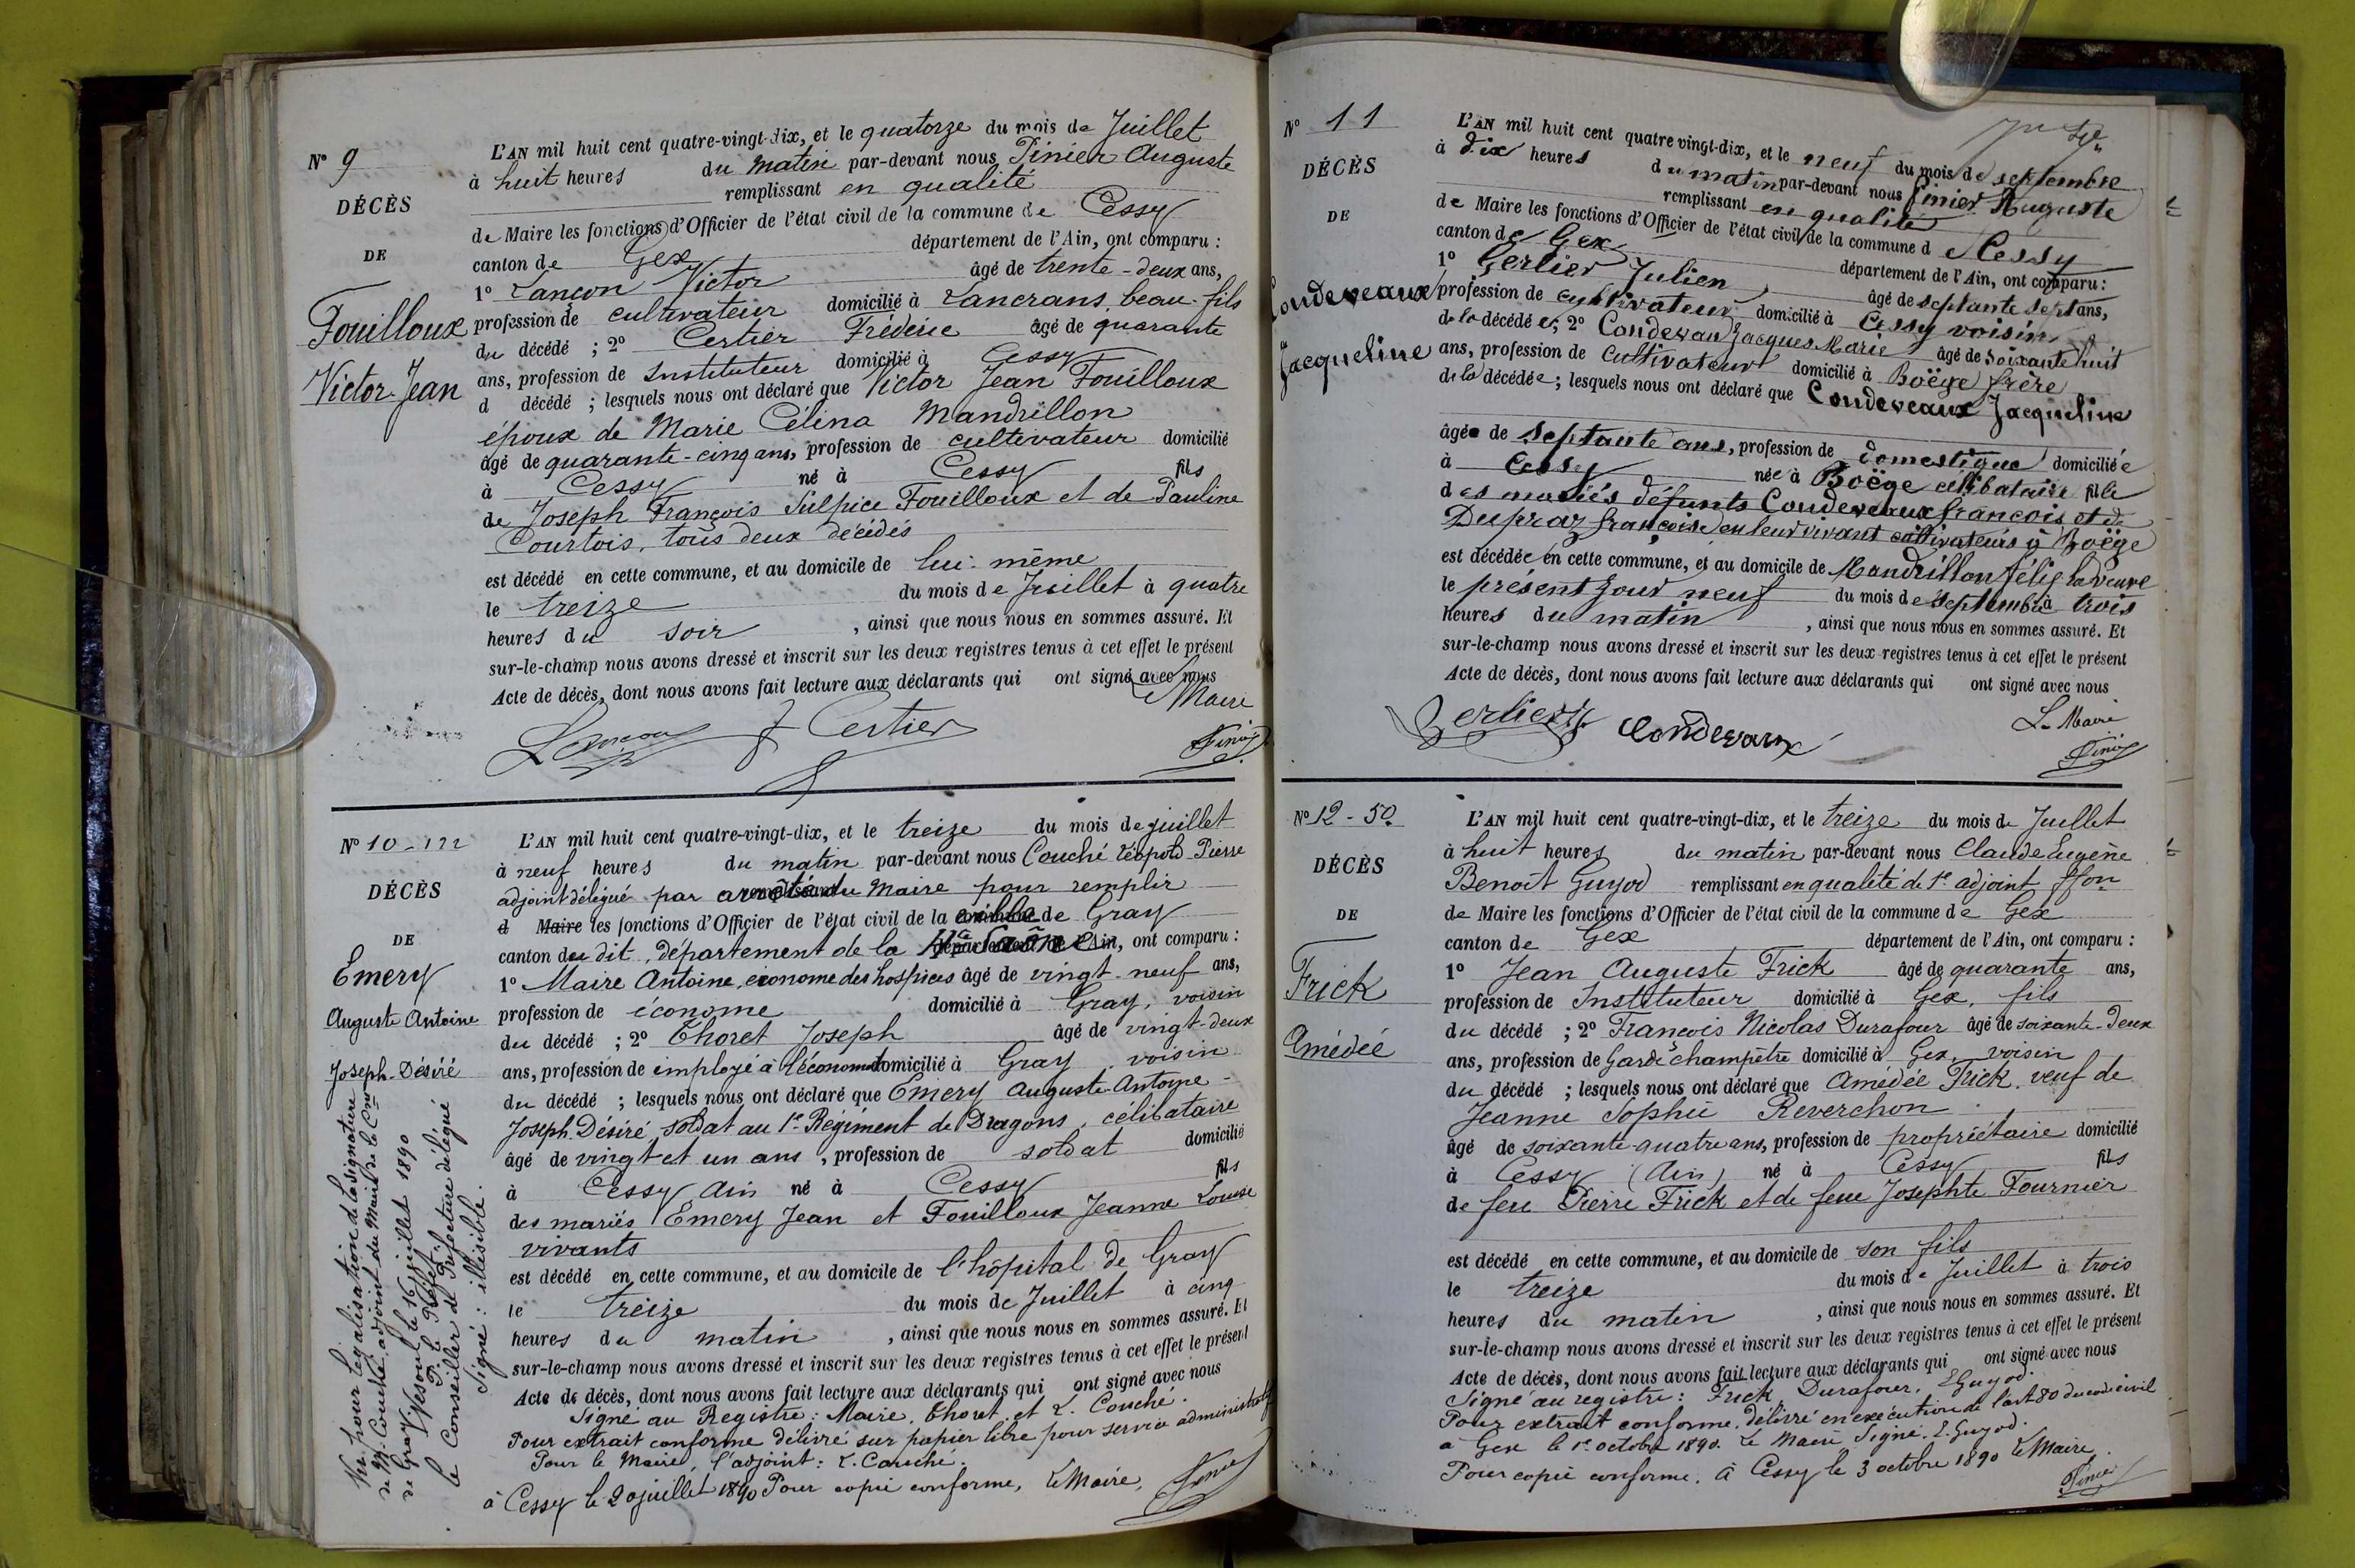 N° 9
DÉCÈS
DE
Fouilloux
Victor Jean
L'AN mil huit cent quatre-vingt-dix, et le quatorze du mois de Juillet
à huit heures du matin par-devant nous Pinier Auguste
remplissant en qualité
de Maire les fonctions d'Officier de l'état civil de la commune de Cessy
canton de Gex département de l'Ain, ont comparu :
1° Lançon Victor âgé de trente-deux ans,
profession de cultivateur domicilié à Lancrans beau-fils
du décédé ; 2° Certier Fréderic âgé de quarante
ans, profession de Instituteur domicilié à Cessy
d décédé ; lesquels nous ont déclaré que Victor Jean Fouilloux
époux de Marie Célina Mandrillon
âgé de quarante-cinq ans, profession de cultivateur domicilié
à Cessy né à Cessy fils
de Joseph François Sulpice Fouilloux et de Pauline
Courtois, tous deux décédés
est décédé en cette commune, et au domicile de lui-même
le treize du mois de Juillet à quatre
heures du soir , ainsi que nous nous en sommes assuré. Et
sur-le-champ nous avons dressé et inscrit sur les deux registres tenus à cet effet le présent
Acte de décès, dont nous avons fait lecture aux déclarants qui ont signé avec nous
Le Maire
Lançon F Certier Pinier
N° 10 - 122
DÉCÈS
DE
Emery
Auguste Antoine
Joseph-Désiré
Vu pour légalisation de la signature
de M. Couché, adjoint du Maire de la Cne
de Gray Vesoul le 16 juillet 1890
P. le Préfet
le Conseiller de Préfecture délégué
signé : illisible.
L'AN mil huit cent quatre-vingt-dix, et le treize du mois de juillet
à neuf heures du matin par-devant nous Couché Léopold-Pierre
adjoint délégué par arrêté du Maire pour remplir
d Maire les fonctions d'Officier de l'état civil de la ville de Gray
canton du dit, département de la Hte Saône, ont comparu :
1° Maire Antoine, économe des hospices âgé de vingt-neuf ans,
profession de économe domicilié à Gray, voisin
du décédé ; 2° Thoret Joseph âgé de vingt-deux
ans, profession de employé à l'économat domicilié à Gray, voisin
du décédé ; lesquels nous ont déclaré que Emery Auguste-Antoine-
Joseph-Désiré, soldat au 1er Régiment de Dragons, célibataire
âgé de vingt et un ans , profession de soldat domicilié
à Cessy Ain né à Cessy fils
des mariés Emery Jean et Fouilloux Jeanne Louise
vivants
est décédé en cette commune, et au domicile de l'hôpital de Gray
le treize du mois de Juillet à cinq
heures du matin , ainsi que nous nous en sommes assuré. Et
sur-le-champ nous avons dressé et inscrit sur les deux registres tenus à cet effet le présent
Acte de décès, dont nous avons fait lecture aux déclarants qui ont signé avec nous
Signé au Registre : Maire, Thoret et L. Couché.
Pour extrait conforme délivré sur papier libre pour service administratif
Pour le Maire, l'adjoint : L. Couché.
à Cessy le 20 juillet 1890 Pour copie conforme, Le Maire, Pinier
N° 11
DÉCÈS
DE
Condeveaux
Jacqueline
L'AN mil huit cent quatre vingt-dix, et le neuf du mois de septembre
à dix heures du matin par-devant nous Pinier Auguste
remplissant en qualité
de Maire les fonctions d'Officier de l'état civil de la commune de Cessy
canton de Gex département de l'Ain, ont comparu :
1° Gerlier Julien âgé de septante sept ans,
profession de cultivateur domicilié à Cessy voisin
de la décédée ; 2° Condevau Jacques Marie âgé de soixante huit
ans, profession de cultivateur domicilié à Boëge frère
de la décédée ; lesquels nous ont déclaré que Condeveaux Jacqueline
âgée de septante ans, profession de domestique domiciliée
à Cessy née à Boëge célibataire fille
des mariés défunts Condeveaux françois et de
Dupraz françoise en leur vivant cultivateurs à Boëge
est décédée en cette commune, et au domicile de Mandrillon félix la veuve
le présent jour neuf du mois de septembre à trois
heures du matin , ainsi que nous nous en sommes assuré. Et
sur-le-champ nous avons dressé et inscrit sur les deux registres tenus à cet effet le présent
Acte de décès, dont nous avons fait lecture aux déclarants qui ont signé avec nous
Gerlier J. Condevaux Le Maire
Pinier
N° 12 - 50
DÉCÈS
DE
Frick
Amédée
L'AN mil huit cent quatre-vingt-dix, et le treize du mois de Juillet
à huit heures du matin par-devant nous Claude Eugène
Benoît Guyod remplissant en qualité de 1er adjoint ffon
de Maire les fonctions d'Officier de l'état civil de la commune de Gex
canton de Gex département de l'Ain, ont comparu :
1° Jean Auguste Frick âgé de quarante ans,
profession de Instituteur domicilié à Gex, fils
du décédé ; 2° François Nicolas Durafour âgé de soixante-deux
ans, profession de Garde champêtre domicilié à Gex, voisin
du décédé ; lesquels nous ont déclaré que Amédée Frick, veuf de
Jeanne Sophie Reverchon
âgé de soixante-quatre ans, profession de propriétaire domicilié
à Cessy (Ain) né à Cessy fils
de feu Pierre Frick et de feue Josephte Fournier
est décédé en cette commune, et au domicile de son fils
le treize du mois de Juillet à trois
heures du matin , ainsi que nous nous en sommes assuré. Et
sur-le-champ nous avons dressé et inscrit sur les deux registres tenus à cet effet le présent
Acte de décès, dont nous avons fait lecture aux déclarants qui ont signé avec nous
Signé au registre : Frick, Durafour, E Guyod.
Pour extrait conforme, délivré en exécution de l'art 80 du code civil
à Gex le 1er octobre 1890. Le Maire Signé. E. Guyod.
Pour copie conforme. à Cessy le 3 octobre 1890 Le Maire.
Pinier